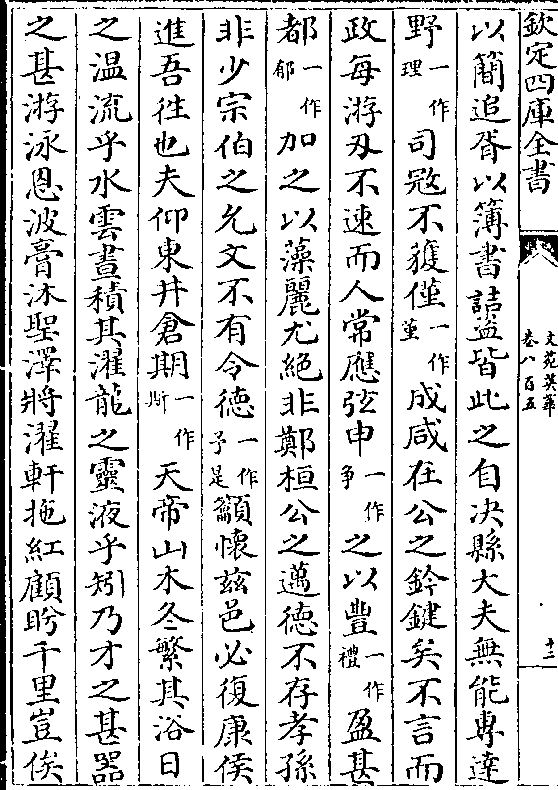 欽定四庫全書
文苑英華
卷八百五
十二
以簡追胥以簿書詰盜皆此之自決縣大夫無能專達
野一作理司㓂不獲僅一作堇成咸在公之鈐鍵矣不言而
政每游刃不速而人常應弦申一作争之以豐一作禮盈甚
都一作郁加之以藻麗尤絶非鄭桓公之邁德不存孝孫
非少宗伯之允文不有令德一作予是籲懷兹邑必復康侯
進吾徃也夫仰東井倉期一作斯天帝山木冬繁其浴日
之温流乎水雲晝積其濯龍之靈液乎矧乃才之甚器
之甚游泳恩波膏沐聖澤將濯軒拖紅顧盻千里豈俟